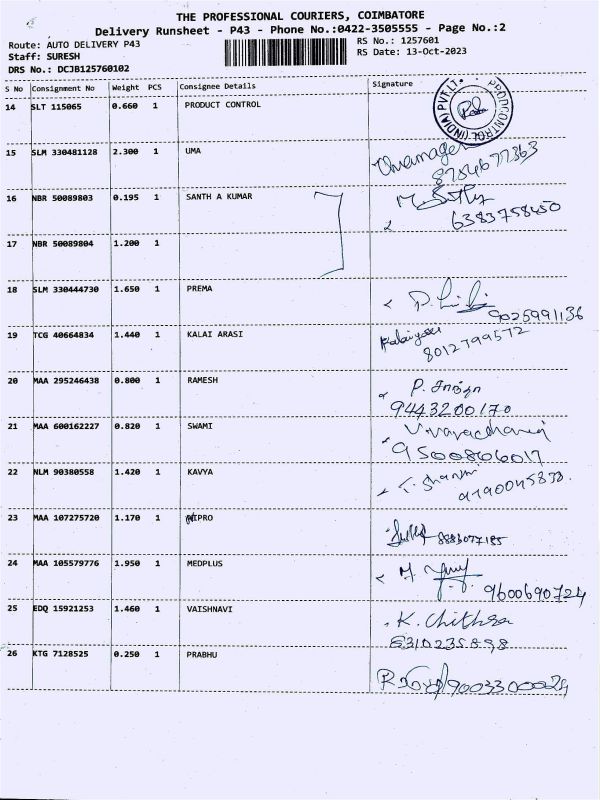 THE PROFESSIONAL COURIERS, COIMBATORE
Delivery Runsheet - P43 - Phone No.:0422-3505555 - Page No.:2
Route: AUTO DELIVERY P43 RS No.: 1257601
Staff: SURESH RS Date: 13-Oct-2023
DRS No.: DCJB125760102
S No Consignment No Weight PCS Consignee Details Signature
14 SLT 115065 0.660 1 PRODUCT CONTROL
PRODCONTROL (INDIA) PVT.LT.
15 SLM 330481128 2.300 1 UMA
8754677363
16 NBR 50089803 0.195 1 SANTH A KUMAR
6383758450
17 NBR 50089804 1.200 1
18 SLM 330444730 1.650 1 PREMA
9025991136
19 TCG 40664834 1.440 1 KALAI ARASI
8012799572
20 MAA 295246438 0.800 1 RAMESH
9443200170
21 MAA 600162227 0.820 1 SWAMI
9500806017
22 NLM 90380558 1.420 1 KAVYA
23 MAA 107275720 1.170 1 WIPRO
24 MAA 105579776 1.950 1 MEDPLUS
9600690724
25 EDQ 15921253 1.460 1 VAISHNAVI
K. Chithra
6310235898
26 KTG 7128525 0.250 1 PRABHU